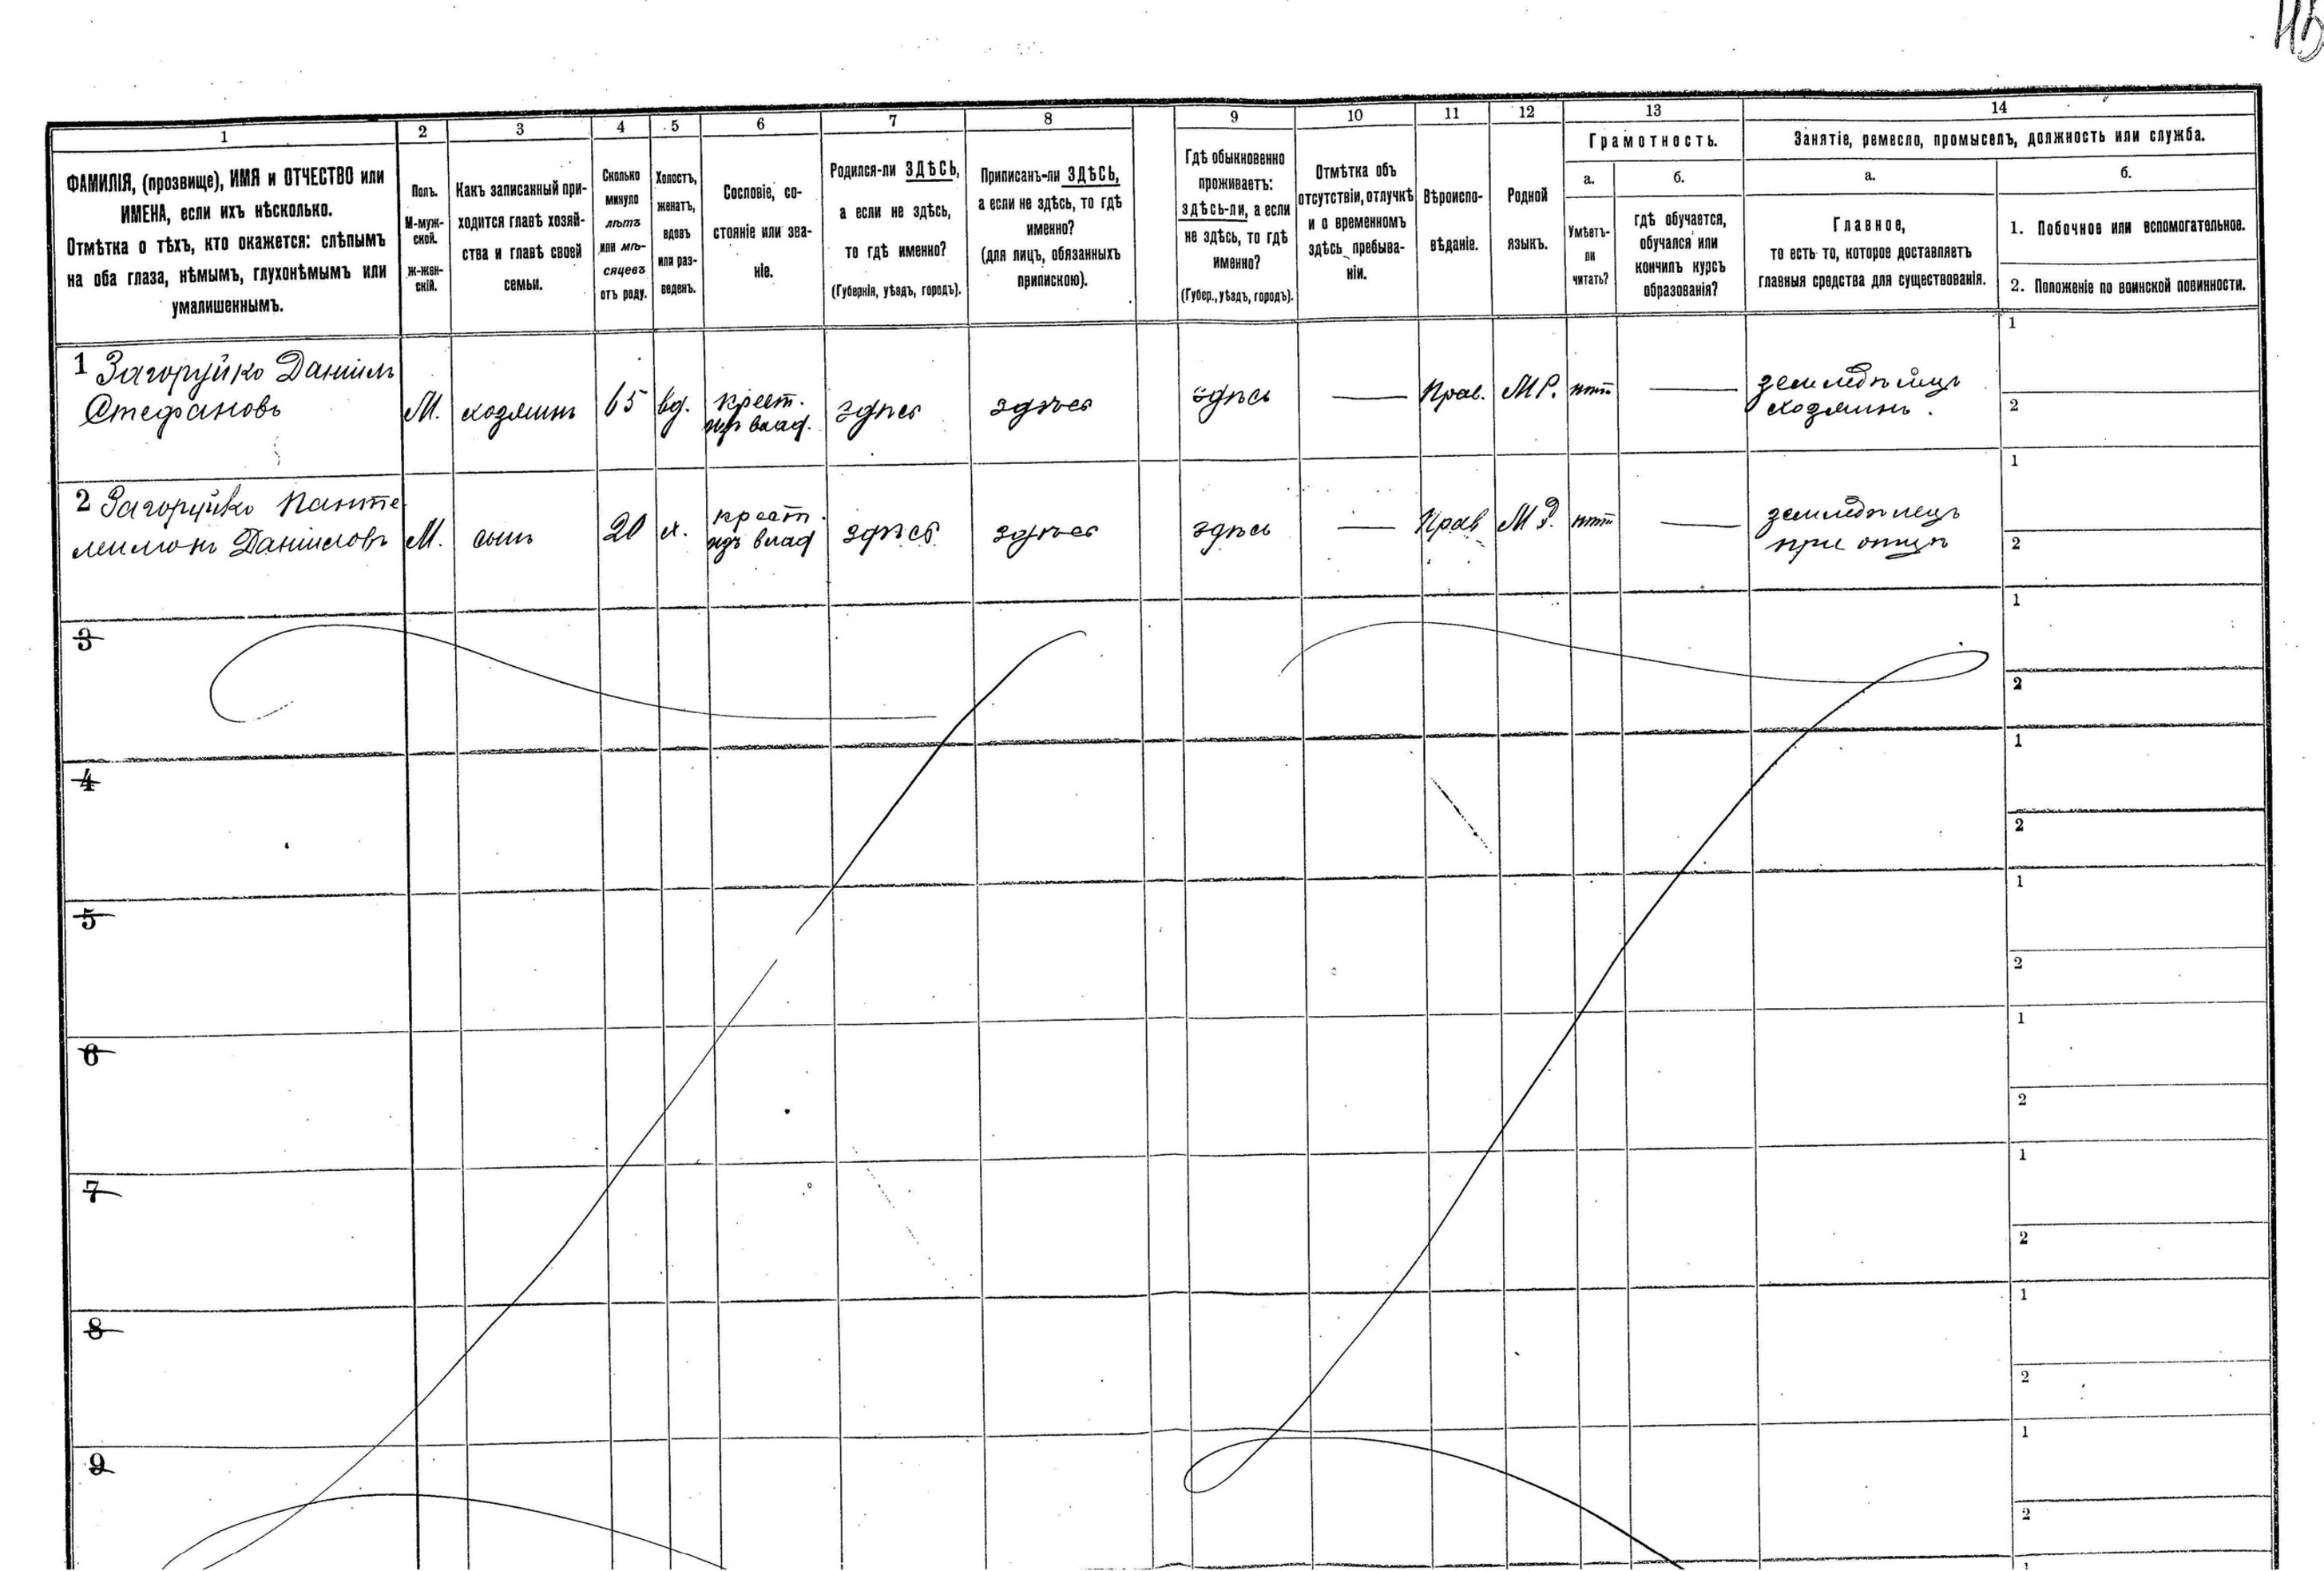 1 2 3 4 5 6 7 8 9 10 11 12 13 14
ФАМИЛІЯ, (прозвище), ИМЯ и ОТЧЕСТВО или
ИМЕНА, если ихъ нѣсколько.
Отмѣтка о тѣхъ, кто окажется: слѣпымъ
на оба глаза, нѣмымъ, глухонѣмымъ или
умалишеннымъ.
Полъ.
М-муж-
ской.
Ж-жен-
скій.
Какъ записанный при-
ходится главѣ хозяй-
ства и главѣ своей
семьи.
Сколько
минуло
лѣтъ
или мѣ-
сяцевъ
отъ роду.
Холостъ,
женатъ,
вдовъ
или раз-
веденъ.
Сословіе, со-
стояніе или зва-
ніе.
Родился-ли ЗДѢСЬ,
а если не здѣсь,
то гдѣ именно?
(Губернія, уѣздъ, городъ).
Приписанъ-ли ЗДѢСЬ,
а если не здѣсь, то гдѣ
именно?
(для лицъ, обязанныхъ
припискою).
Гдѣ обыкновенно
проживаетъ:
здѣсь-ли, а если
не здѣсь, то гдѣ
именно?
(Губер., уѣздъ, городъ).
Отмѣтка объ
отсутствіи, отлучкѣ
и о временномъ
здѣсь пребыва-
ніи.
Вѣроиспо-
вѣданіе.
Родной
языкъ.
Грамотность.
а.
Умѣетъ-
ли
читать?
б.
гдѣ обучается,
обучался или
кончилъ курсъ
образованія?
Занятіе, ремесло, промыселъ, должность или служба.
а.
Главное,
то есть то, которое доставляетъ
главныя средства для существованія.
б.
1. Побочное или вспомогательное.
2. Положеніе по воинской повинности.
1 Загоруйко Даніилъ
Стефановъ
М.
хозяинъ
65
вд.
крест.
изъ влад.
здѣсь
здѣсь
здѣсь
—
Прав.
М Р.
нѣтъ
—
земледѣлецъ
хозяинъ.
1
2
2 Загоруйко Панте
леимонъ Даніиловъ
М.
сынъ
20
х.
крест.
изъ влад
здѣсь
здѣсь
здѣсь
—
Прав
М Р.
нѣтъ
—
земледѣлецъ
при отцѣ
1
2
3
1
2
4
1
2
5
1
2
6
1
2
7
1
2
8
1
2
9
1
2